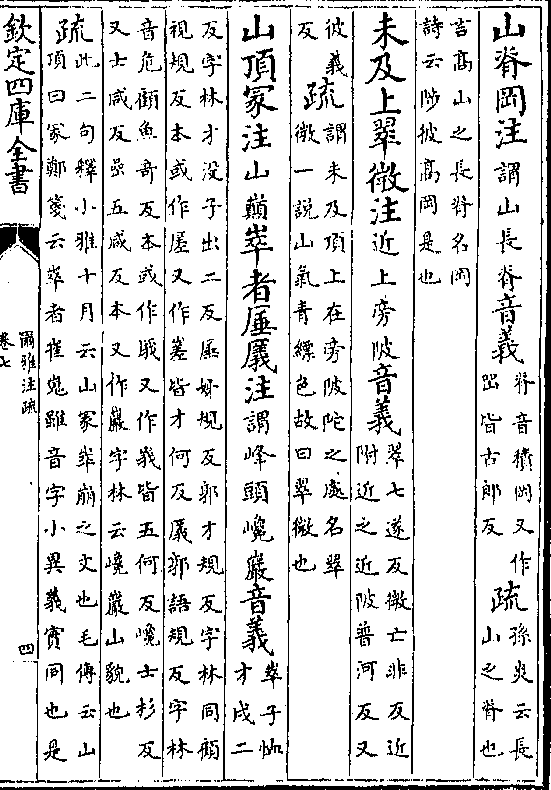 山脊岡注謂山長脊音義
脊音積岡又作
皆古郎反
疏
孫炎云長
山之脊也
言高山之長脊名岡
詩云陟彼高岡是也
未及上翠微注近上旁陂音義
翠七遂反微亡非反近
附近之近陂普河反又
彼義
反
疏
謂未及頂上在旁陂陀之處名翠
微一說山氣青縹色故曰翠微也
山頂冢注山巔崒者厜㕒注謂峰頭巉巖音義
崒子恤
才戌二
反字林才沒子出二反厜姊規反郭才規反字林同顧
視規反本或作厜又作嵳皆才何反㕒郭語規反字林
音危顧魚奇反本或作又作峩皆五何反巉士杉反
又士咸反巖五咸反本又作巖字林云巉巖山貌也
疏
此二句釋小雅十月云山冢崒崩之文也毛傳云山
頂曰冢鄭箋云崒者崔嵬雖音字小異義實同也是
欽定四庫全書
爾雅注疏
卷七
四